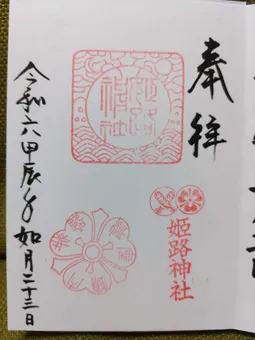 奉拝
姫路神社
姫路神社
令和六甲辰年如月二十三日